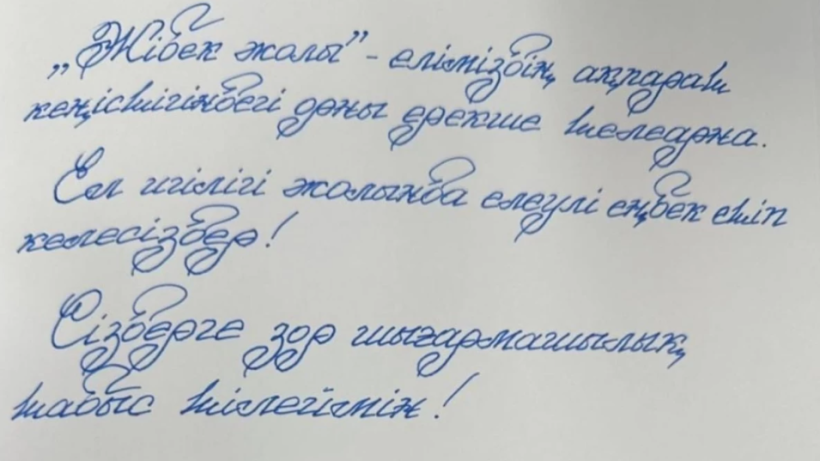 „Жібек жолы” - еліміздің ақпарат
кеңістігіндегі орны ерекше телеарна.
Ел игілігі жолында елеулі еңбек етіп
келесіздер!
Сіздерге зор шығармашылық
табыс тілеймін!